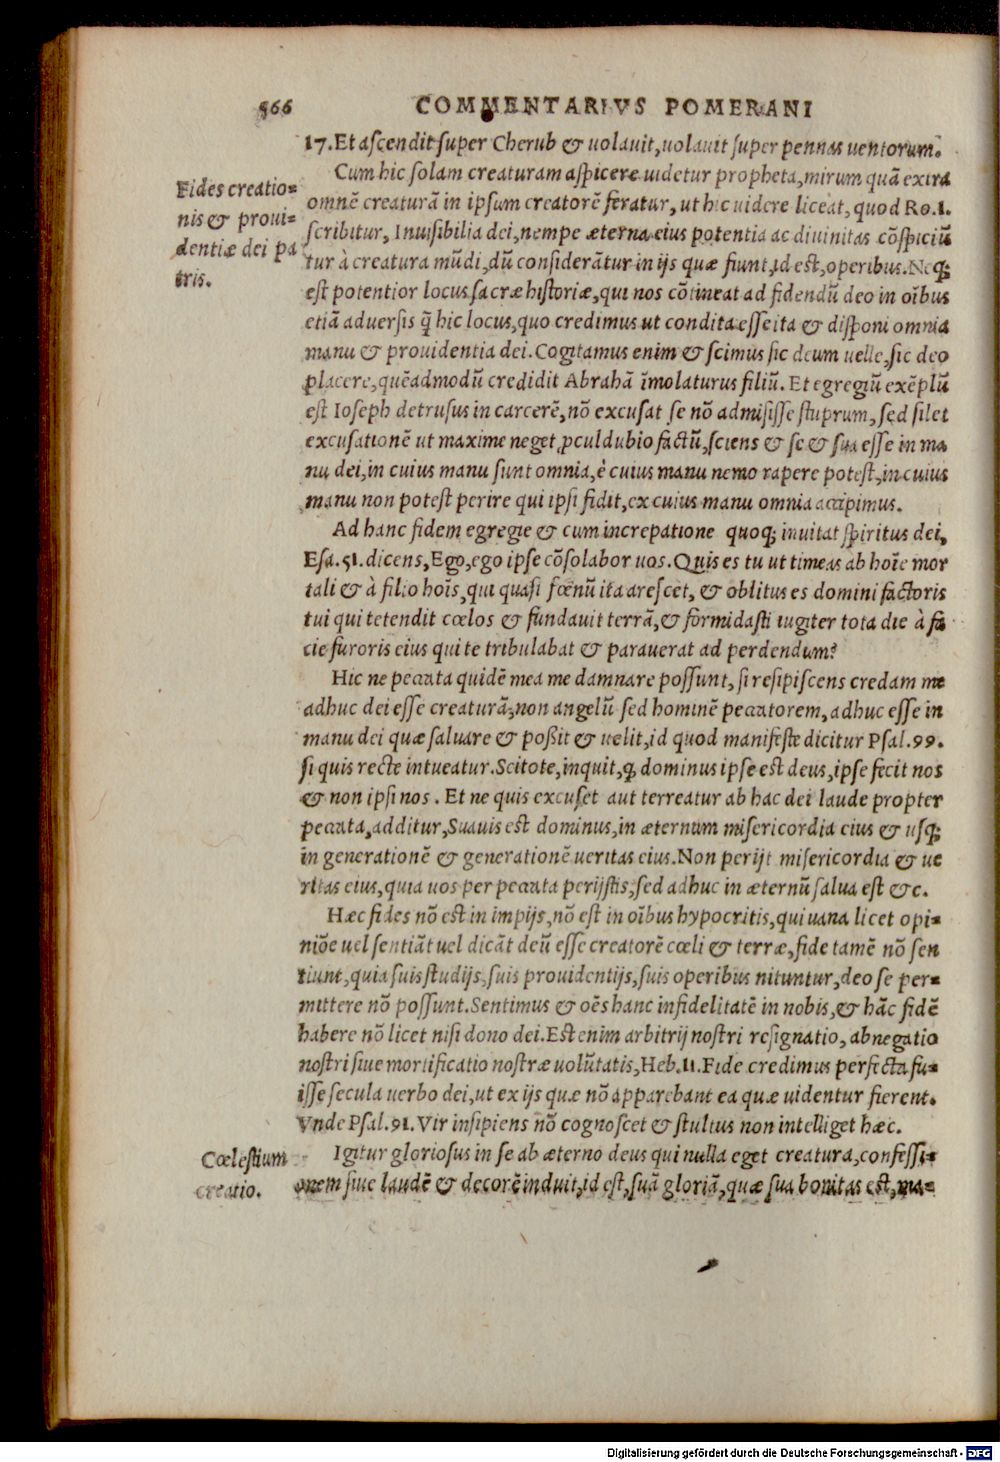 566 COMMENTARIVS POMERANI
17. Et ascendit super Cherub & uolauit, uolauit super pennas uentorum.
Cum hic solam creaturam aspicere uidetur propheta, mirum quã extra
Fides creatio=
omnẽ creaturã in ipsum creatorẽ feratur, ut hic uidere liceat, quod Ro.1.
nis & proui=
scribitur, Inuisibilia dei, nempe æterna eius potentia ac diuinitas cõspiciũ
dentiæ dei pa
tur à creatura mũdi, dũ considerãtur in ijs quæ fiunt, id est, operibus. Neqȝ
tris.
est potentior locus sacræ historiæ, qui nos cõtineat ad fidendũ deo in oĩbus
etiã aduersis q̃ hic locus, quo credimus ut condita esse ita & disponi omnia
manu & prouidentia dei. Cogitamus enim & scimus sic deum uelle, sic deo
placere, quẽadmodũ credidit Abrahã ĩmolaturus filiũ. Et egregiũ exẽplũ
est Ioseph detrusus in carcerẽ, nõ excusat se nõ admisisse stuprum, sed silet
excusationẽ ut maxime neget ꝓculdubio factũ, sciens & se & sua esse in ma
nu dei, in cuius manu sunt omnia, è cuius manu nemo rapere potest, in cuius
manu non potest perire qui ipsi fidit, ex cuius manu omnia accipimus.
Ad hanc fidem egregie & cum increpatione quoqȝ inuitat spiritus dei,
Esa.51. dicens, Ego, ego ipse cõsolabor uos. Quis es tu ut timeas ab hoĩe mor
tali & à filio hoĩs, qui quasi fœnũ ita arescet, & oblitus es domini factoris
tui qui tetendit cœlos & fundauit terrã, & formidasti iugiter tota die à fa
cie furoris eius qui te tribulabat & parauerat ad perdendum?
Hic ne peccata quidẽ mea me damnare possunt, si resipiscens credam me
adhuc dei esse creaturã, non angelũ sed hominẽ peccatorem, adhuc esse in
manu dei quæ saluare & poßit & uelit, id quod manifeste dicitur Psal.99.
si quis recte intueatur. Scitote, inquit, ꝙ dominus ipse est deus, ipse fecit nos
& non ipsi nos. Et ne quis excuset aut terreatur ab hac dei laude propter
peccata, additur, Suauis est dominus, in æternum misericordia eius & usqȝ
in generationẽ & generationẽ ueritas eius. Non perijt misericordia & ue
ritas eius, quia uos per peccata perijstis, sed adhuc in æternũ salua est &c.
Hæc fides nõ est in impijs, nõ est in oĩbus hypocritis, qui uana licet opi=
niõe uel sentiãt uel dicãt deũ esse creatorẽ cœli & terræ, fide tamẽ nõ sen
tiunt, quia suis studijs, suis prouidentijs, suis operibus nituntur, deo se per=
mittere nõ possunt. Sentimus & oẽs hanc infidelitatẽ in nobis, & hãc fidẽ
habere nõ licet nisi dono dei. Est enim arbitrij nostri resignatio, abnegatio
nostri siue mortificatio nostræ uolũtatis, Heb.11. Fide credimus perfecta fu=
isse secula uerbo dei, ut ex ijs quæ nõ apparebant ea quæ uidentur fierent.
Vnde Psal.91. Vir insipiens nõ cognoscet & stultus non intelliget hæc.
Cœlestium
Igitur gloriosus in se ab æterno deus qui nulla eget creatura, confessi=
creatio.
onem siue laudẽ & decorẽ induit, id est, suã gloriã, quæ sua bonitas est, ma=
Digitalisierung gefördert durch die Deutsche Forschungsgemeinschaft - DFG